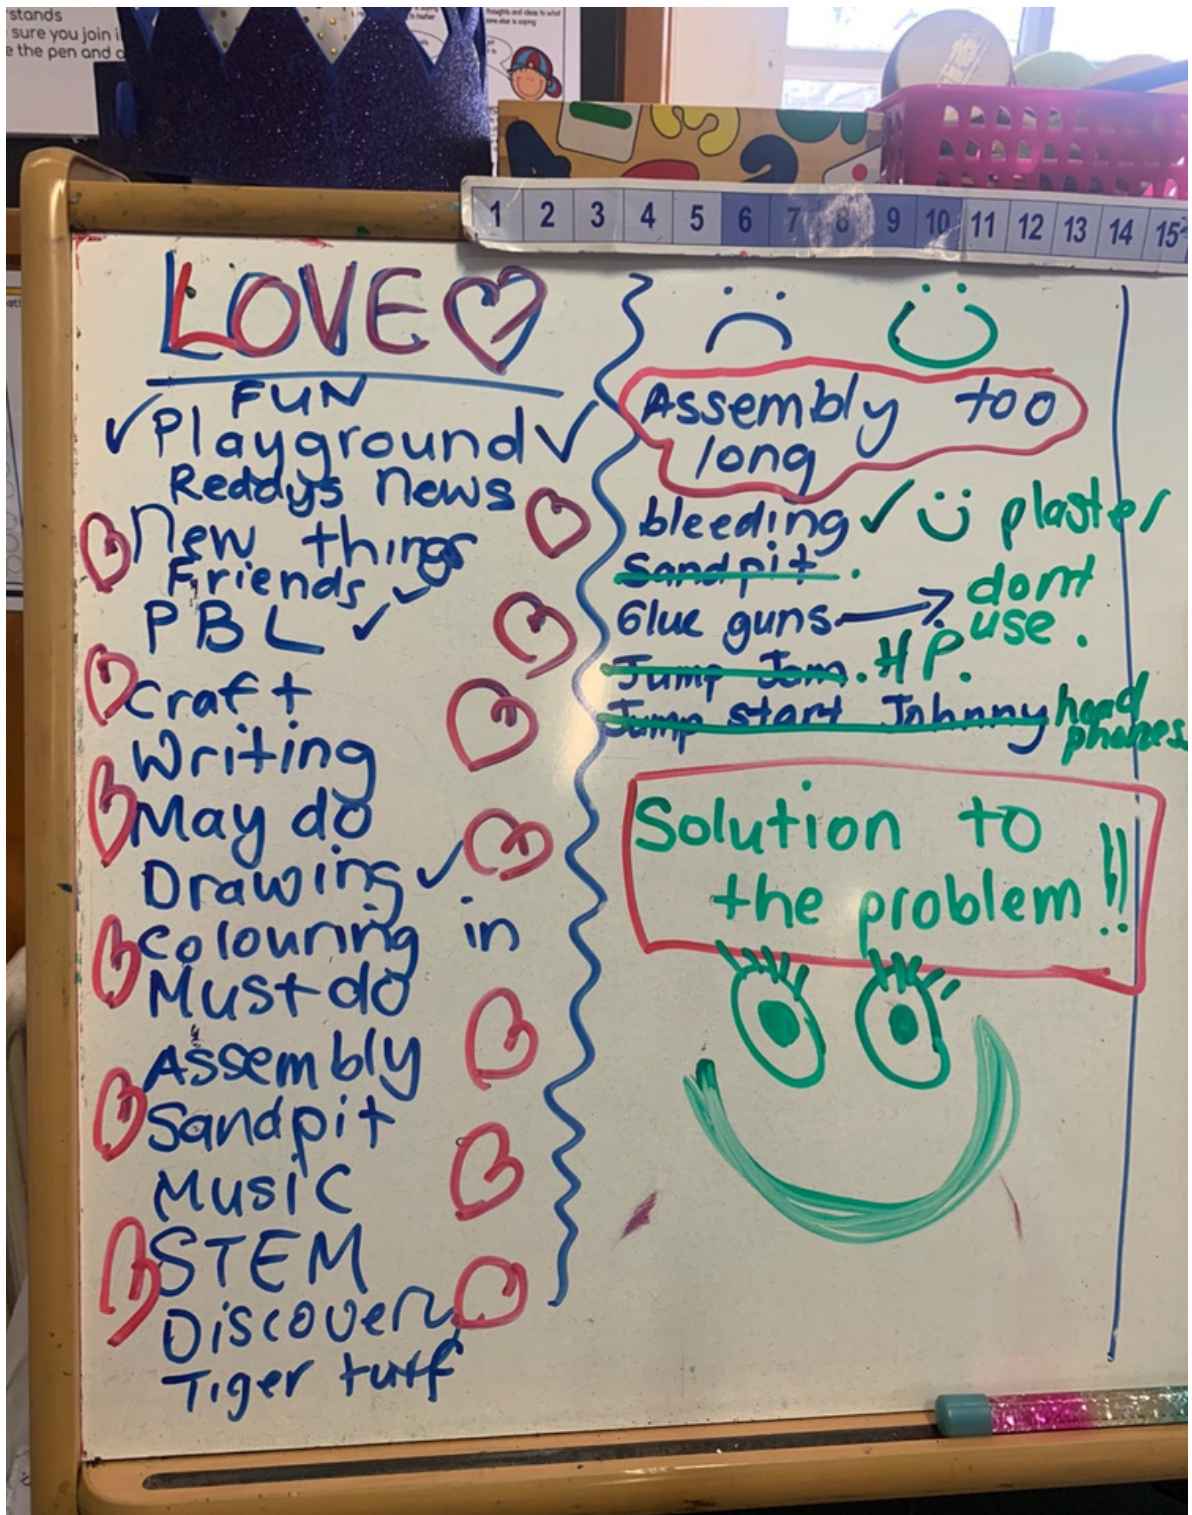 stands
sure you join i
e the pen and
thoughts and ideas to what
one else is saying
1 2 3 4 5 6 7 8 9 10 11 12 13 14 15
LOVE
FUN
Playground
Reddys News
New things
Friends
PBL
Craft
Writing
May do
Drawing
Colouring in
Must do
Assembly
Sandpit
Music
STEM
Discovery
Tiger turf
Assembly too
long
bleeding plaster
Sandpit.
Glue guns dont
use.
Jump Jam. HP.
Jump start Johnny head
phones
Solution to
the problem!!